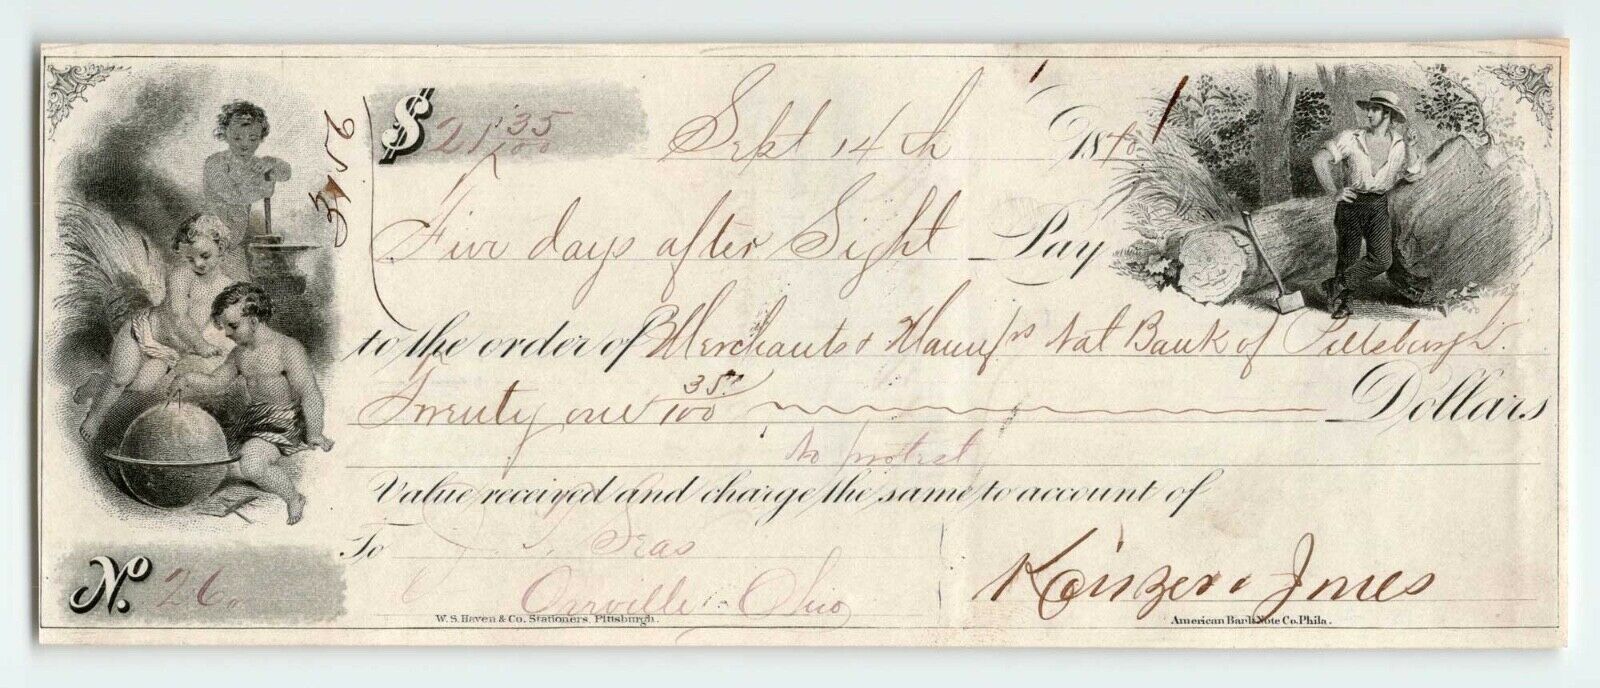 $ 21 35/100 Sept 14th 1870
Five days after Sight Pay
to the order of Merchants & Manufrs Nat Bank of Pittsburgh
Twenty one 35/100 Dollars
No protest
Value received and charge the same to account of
To Seas
Orrville Ohio
Kinzer & Jones
No. 26
W. S. Haven & Co. Stationers, Pittsburgh.
American Bank Note Co. Phila.